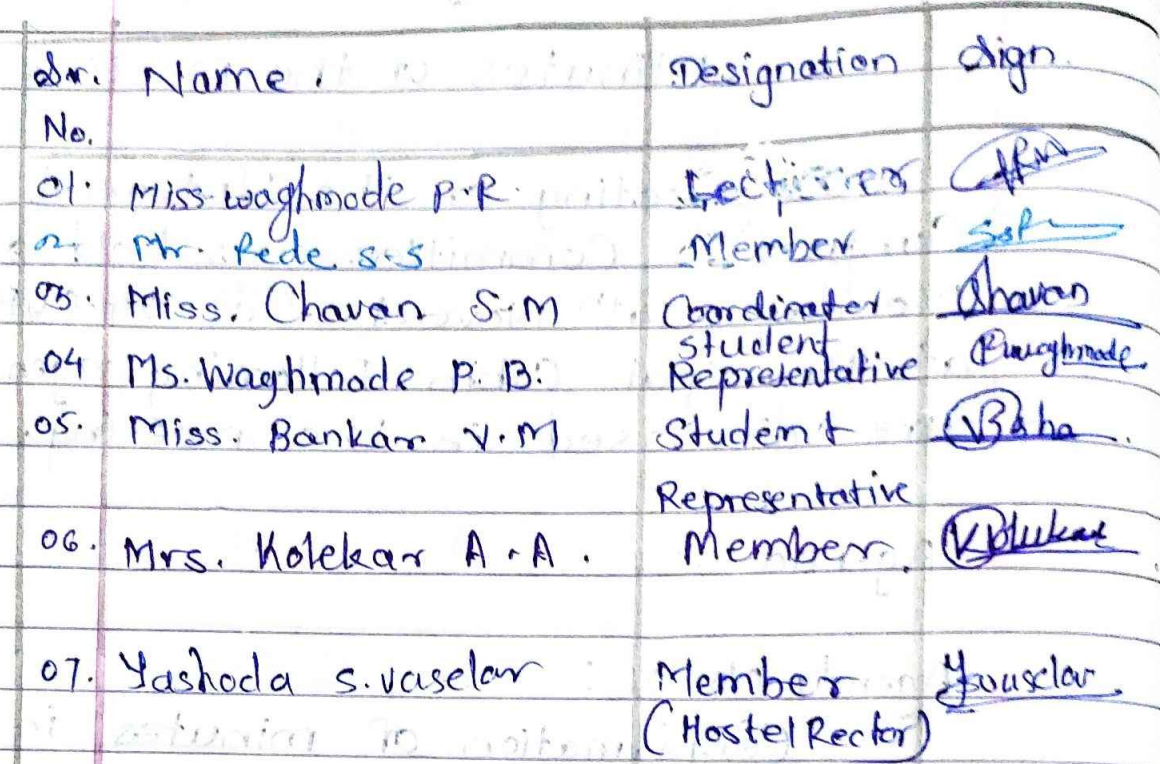 Sr. Name. Designation Sign
No.
01. Miss. waghmode P.R. Lecturer
02. Mr. Rede S.S Member
03. Miss. Chavan S.M Coordinator Chavan
04 Ms. Waghmode P. B. Student Representative. Pwaghmode
05. Miss. Bankar V.M Student
Representative
06. Mrs. Kolekar A.A. Member. Kolekar
07. Yashoda s. vaselar Member Yvaselar
(Hostel Rector)